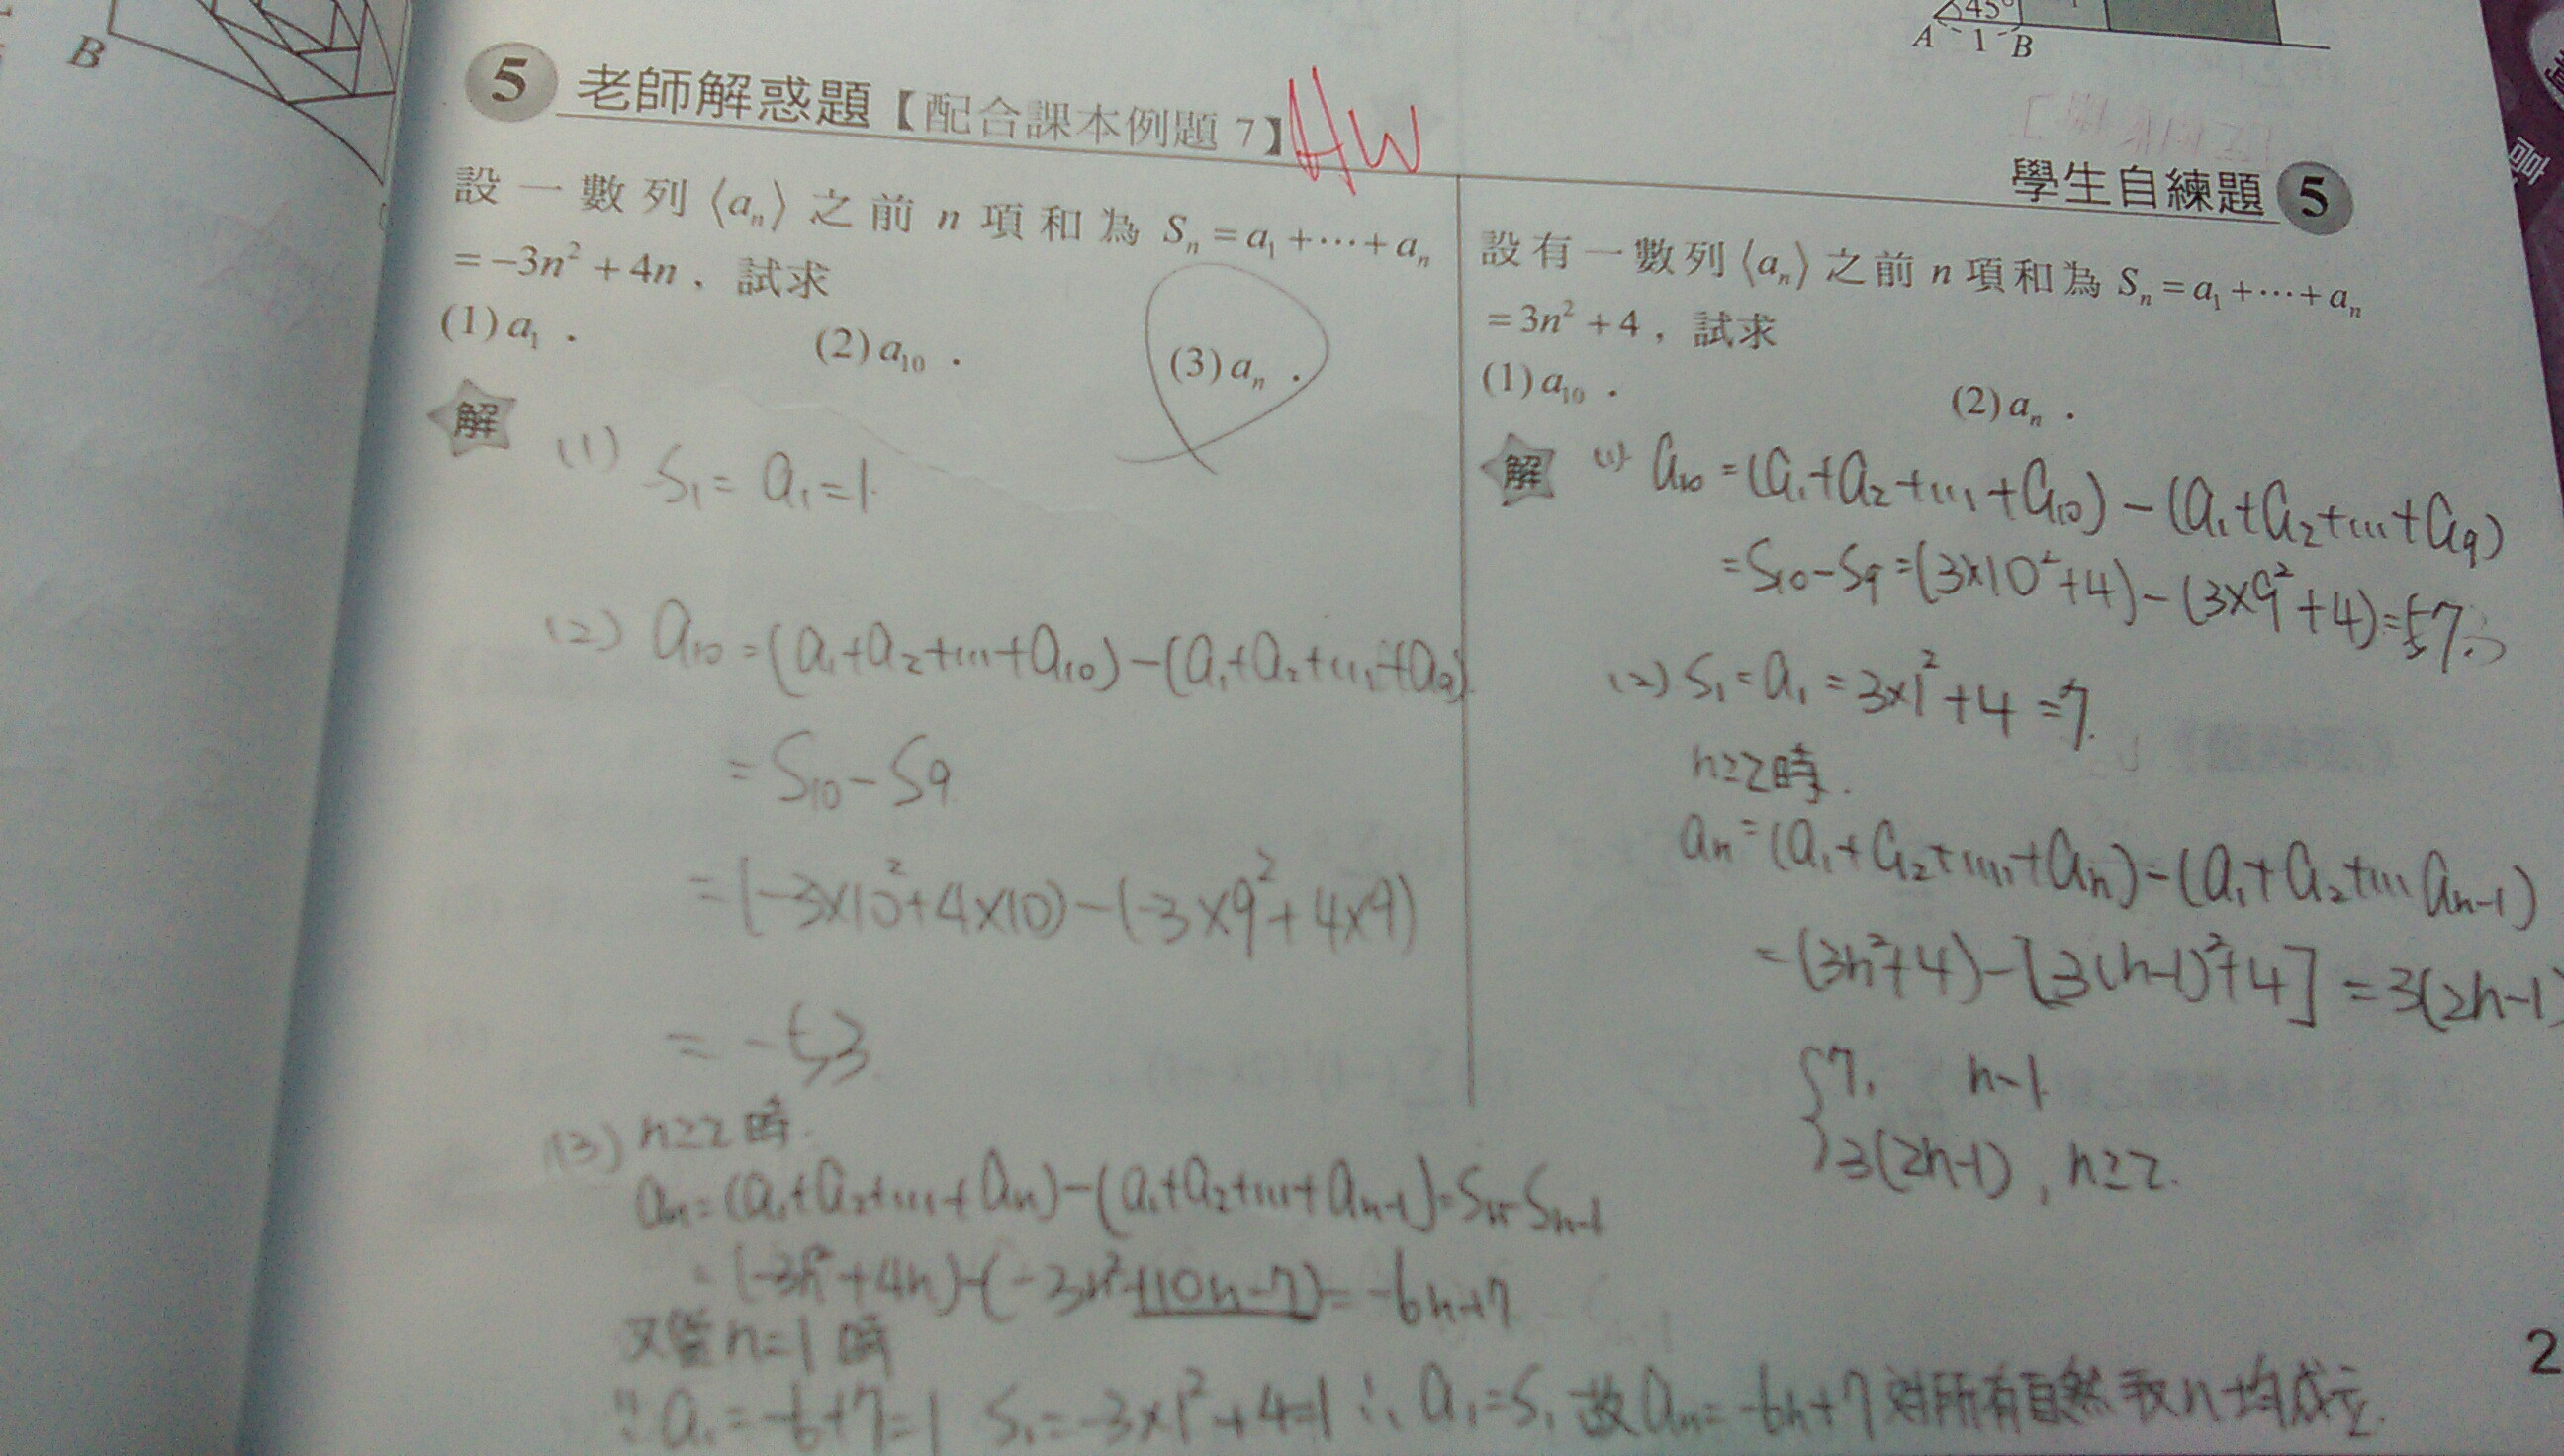 B
45°
A 1 B
5 老師解惑題【配合課本例題 7】HW
設一數列⟨aₙ⟩之前 n 項和為 Sₙ = a₁ + ⋯ + aₙ
= −3n² + 4n，試求
(1) a₁．
(2) a₁₀．
(3) aₙ．
解
(1) S₁ = a₁ = 1.
(2) a₁₀ = (a₁+a₂+…+a₁₀) − (a₁+a₂+…+a₉)
= S₁₀ − S₉
= (−3×10²+4×10) − (−3×9²+4×9)
= −53
(3) n≥2時.
aₙ = (a₁+a₂+…+aₙ) − (a₁+a₂+…+aₙ₋₁) = Sₙ−Sₙ₋₁
= (−3n²+4n)−(−3n²+10n−7) = −6n+7
又當n=1時
∵a₁ = −6+7=1 S₁=−3×1²+4=1 ∴a₁=S₁ 故aₙ=−6n+7 對所有自然數n均成立.
學生自練題 5
設有一數列⟨aₙ⟩之前 n 項和為 Sₙ = a₁ + ⋯ + aₙ
= 3n² + 4，試求
(1) a₁₀．
(2) aₙ．
解
(1) a₁₀ = (a₁+a₂+…+a₁₀) − (a₁+a₂+…+a₉)
= S₁₀−S₉ = (3×10²+4) − (3×9²+4) = 57
(2) S₁ = a₁ = 3×1²+4 = 7.
n≥2時.
aₙ = (a₁+a₂+…+aₙ) − (a₁+a₂+…aₙ₋₁)
= (3n²+4) − [3(n−1)²+4] = 3(2n−1)
{7, n-1.
3(2n−1), n≥2.
2